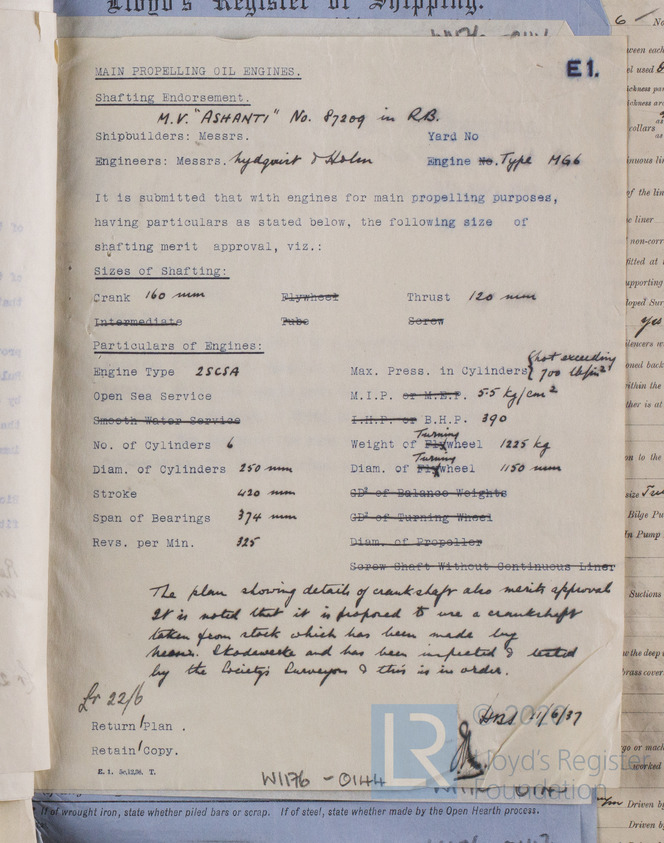 Lloyd's Register of Shipping.
W1176-0141
MAIN PROPELLING OIL ENGINES.
E1.
Shafting Endorsement.
M.V. "ASHANTI" No. 87209 in R.B.
Shipbuilders: Messrs. Yard No
Engineers: Messrs. Nydqvist & Holm Engine No. Type MG6
It is submitted that with engines for main propelling purposes,
having particulars as stated below, the following size of
shafting merit approval, viz.:
Sizes of Shafting:
Crank 160 mm Flywheel Thrust 120 mm
Intermediate Tube Screw
Particulars of Engines:
Engine Type 2SCSA Max. Press. in Cylinders {not exceeding 700 lb/in²
Open Sea Service M.I.P. or M.E.P. 5.5 kg/cm²
Smooth Water Service I.H.P. or B.H.P. 390
No. of Cylinders 6 Weight of Flywheel Turning 1225 kg
Diam. of Cylinders 250 mm Diam. of Flywheel Turning 1150 mm
Stroke 420 mm GD² of Balance Weights
Span of Bearings 374 mm GD² of Turning Wheel
Revs. per Min. 325 Diam. of Propellor
Screw Shaft Without Continuous Liner
The plan showing details of crankshaft also merits approval
It is noted that it is proposed to use a crankshaft
taken from stock which has been made by
Messrs. Skodawerke and has been inspected & tested
by the Society's Surveyors & this is in order.
Lr 22/6
Return/Plan.
Retain/Copy.
E. 1. T.
W1176-0144
© 2020
LR
Lloyd's Register
Foundation
If of wrought iron, state whether piled bars or scrap. If of steel, state whether made by the Open Hearth process.